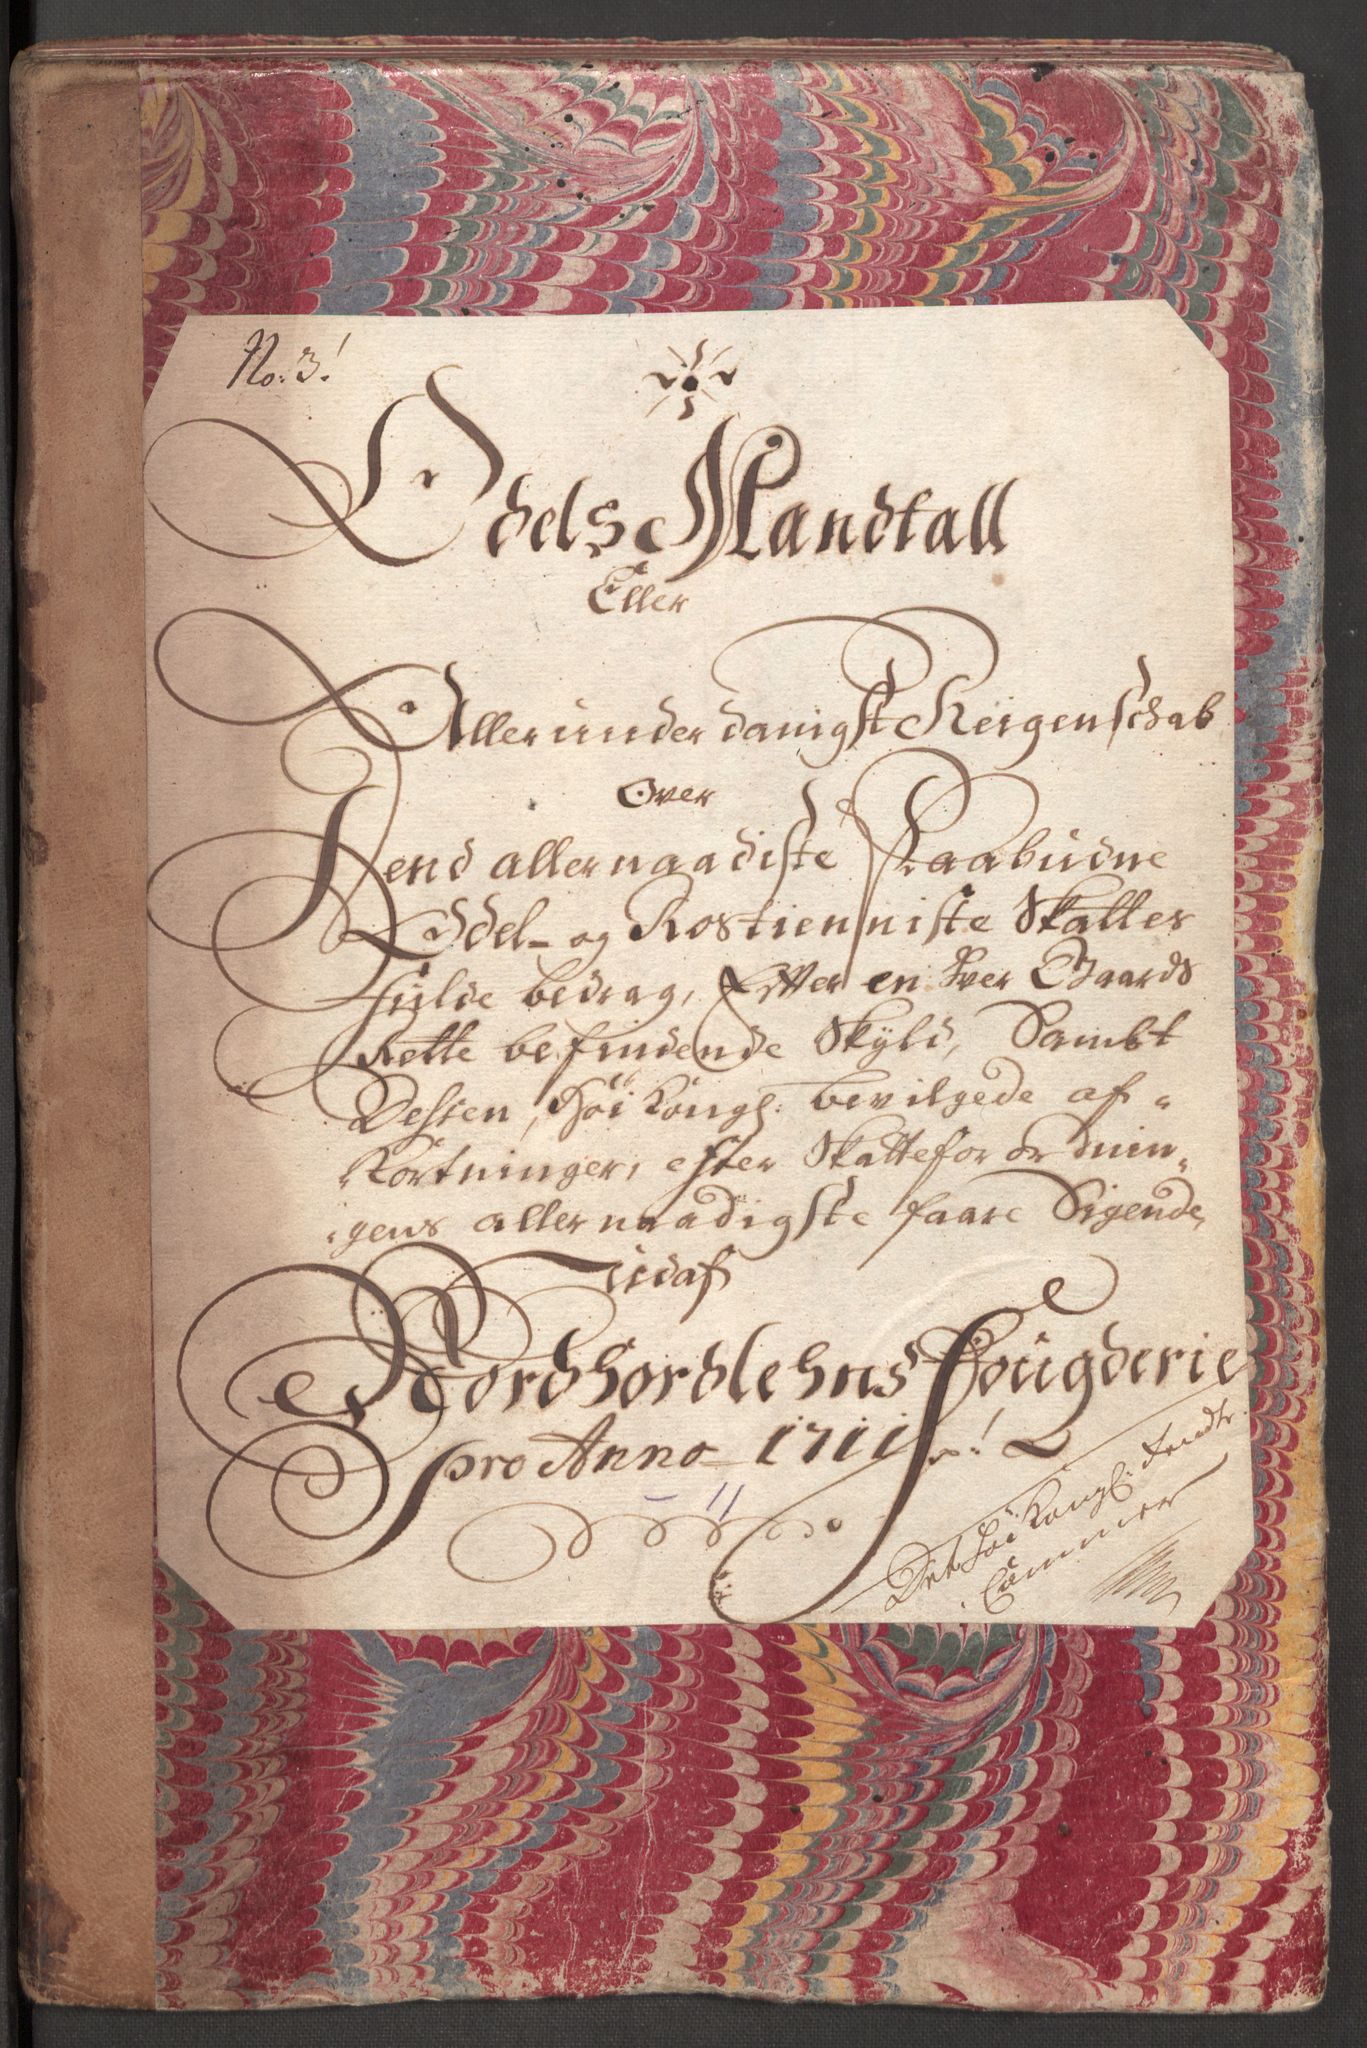 No: 3!
Odels Mandtall
Eller
Allerunderdanigste Reigenschab
Over
Dend allernaadiste Paabudne
Oddel- og Rostienniste Skatter
fulde bedrag, Efter en hver Gaards
Rette befindende Skyld, Sambt
Dessen, Höi Kongl: bevilgede af-
Kortninger, efter Skatteforordnin-
gens allernaadigste faare Sigende,
Udaf
Nordhordlehns Fougderie
pro Anno 1711
- 11
Det Höi Kongl: Rendte
Cammer